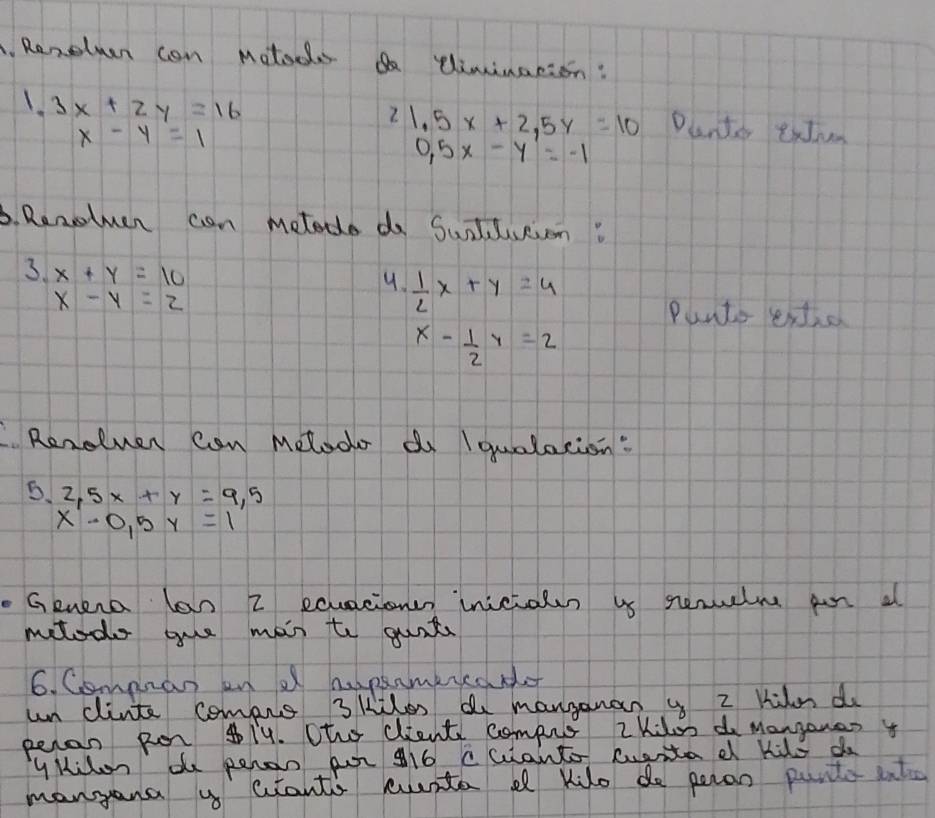 1. Resolver con Metodo de eliminación:
1. 3x + 2y = 16
x - y = 1
2 1.5x + 2,5y = 10 Punto extra
0,5x - y = -1
3. Resolver con metodo de Sustitución:
3. x + y = 10
x - y = 2
4. 1/2 x + y = 4
x - 1/2 y = 2
Punto extra
Resolver con Metodo de Igualación:
5. 2,5x + y = 9,5
x - 0,5y = 1
• Genera las 2 ecuaciones iniciales y resuelve por el
metodo que más te guste
6. Compras en el supermercado
un clinte compro 3 kilos de manzanas y 2 kilos de
peras por $14. Otro cliente compro 2 kilos de Manzanas y
4 kilos de peras por $16 ¿Cuánto cuesta el kilo de
manzana y cuánto cuesta el kilo de peras punto extra